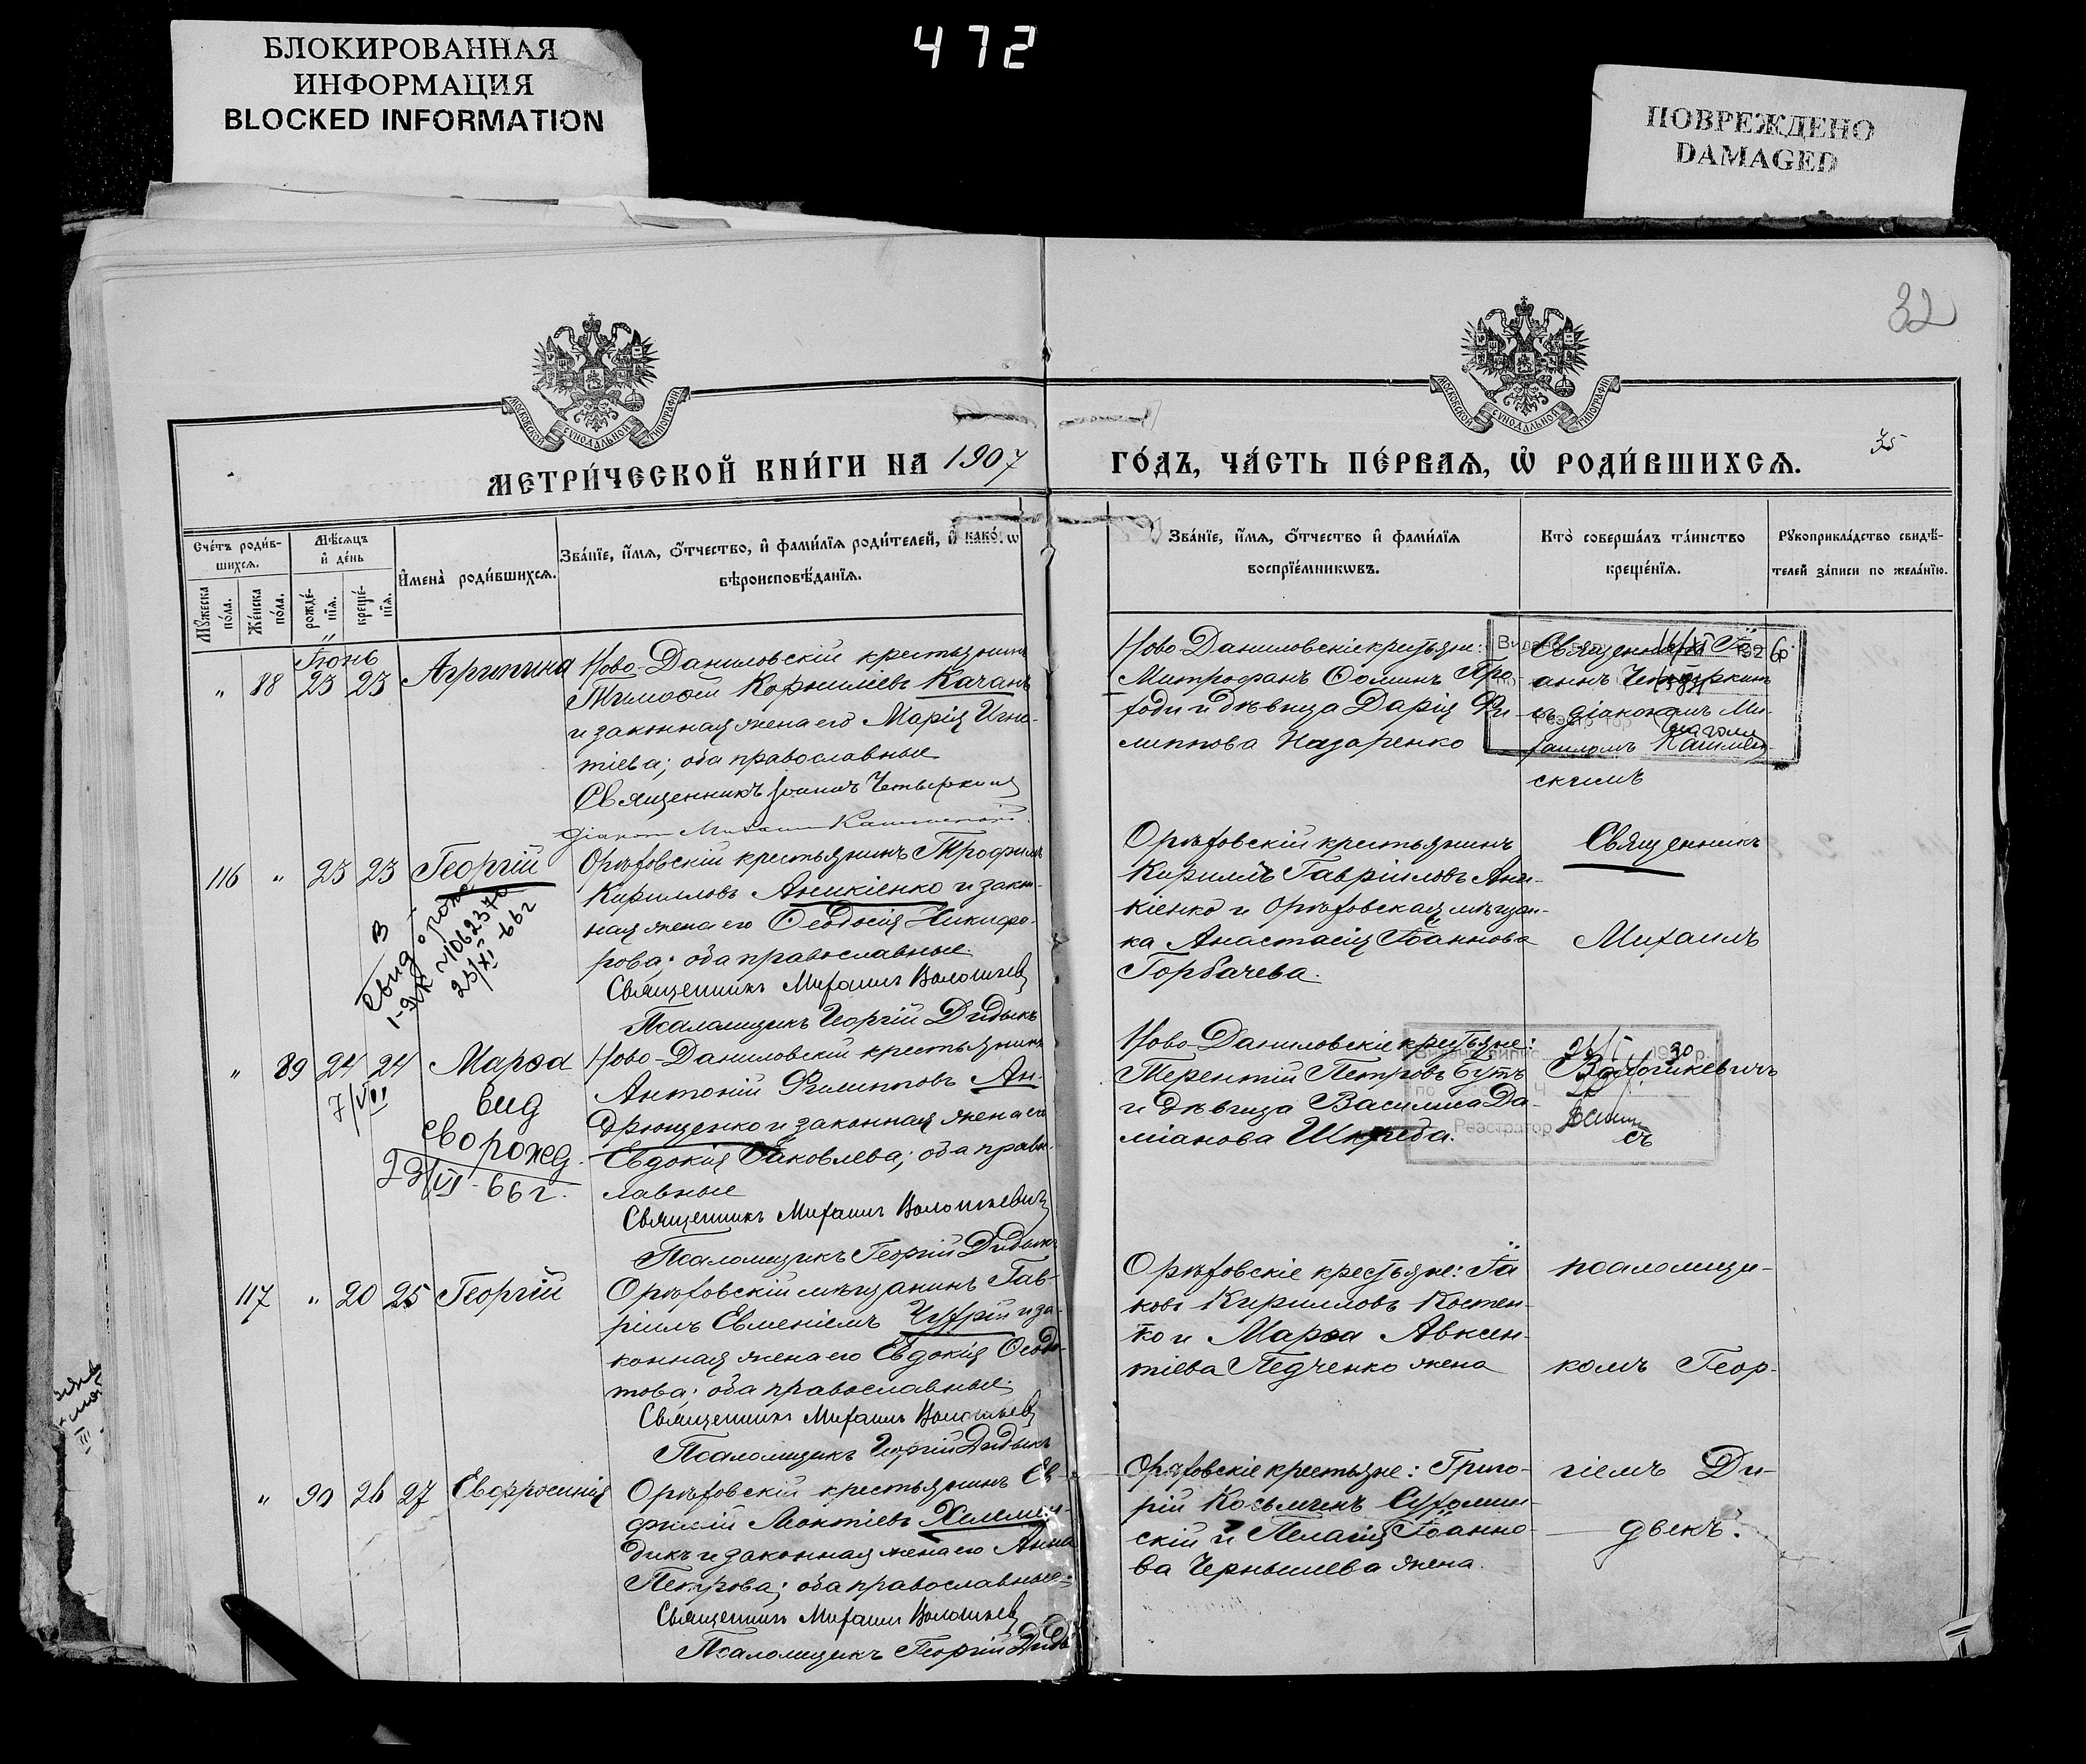 БЛОКИРОВАННАЯ
ИНФОРМАЦИЯ
BLOCKED INFORMATION
472
ПОВРЕЖДЕНО
DAMAGED
32
35
МОСКОВСКОЙ СУНОДАЛЬНОЙ ТИПОГРАФІИ
МОСКОВСКОЙ СУНОДАЛЬНОЙ ТИПОГРАФІИ
МЕТРИ́ЧЕСКОЙ КНИ́ГИ НА 1907
ГО́ДЪ, ЧА́СТЬ ПЕ́РВАѦ, Ѽ РОДИ́ВШИХСѦ.
Сче́тъ роди́в-
шихсѧ.
Мꙋ́жеска по́ла.
Же́нска по́ла.
Мѣ́сѧцъ
и҆ де́нь
рожде́-
нїѧ.
креще́-
нїѧ.
И҆мена̀ роди́вшихсѧ.
Зва́нїе, и҆́мѧ, ѻ҆́тчество, и҆ фами́лїѧ роди́телей, и҆ како́гѡ
вѣроисповѣ́данїѧ.
Зва́нїе, и҆́мѧ, ѻ҆́тчество и҆ фами́лїѧ
воспрїе́мникѡвъ.
Кто̀ соверша́лъ та́инство
креще́нїѧ.
Рꙋкоприкла́дство свидѣ́-
телей за́писи по жела́нїю.
Іюнь
" 88 23 23 Агрипина
Ново-Даниловскій крестьянинъ
Тимофей Корнилiевъ Качанъ
и законная жена его Марія Игна-
тіева; оба православные
Священникъ Іоаннъ Четыркинъ
діаконъ Михаилъ
Ново Даниловскіе крестьяне:
Митрофанъ Ѳоминъ Про-
ходи и дѣвица Дарія Фи-
липпова Назаренко
Священникъ Іо-
аннъ Четыркинъ
съ діакономъ Ми-
хаиломъ
скимъ
116 " 23 23 Георгій
Орѣховскій крестьянинъ Трофимъ
Кирилловъ Аникіенко и закон-
ная жена его Ѳеодосія Никифо-
рова; оба православные.
Священникъ Михаилъ
Псаломщикъ Георгій Дидыкъ
В
свид. о рож
25/XI-66г
Орѣховскій крестьянинъ
Кириллъ Гавріиловъ Ани-
кіенко и Орѣховская мѣщан-
ка Анастасія Іоаннова
Горбачева.
Священникъ
Михаилъ
" 89 24 24 Марѳа
7/VII
вид
св о рожд.
29/VI-66г.
Ново-Даниловскій крестьянинъ
Антоній Филипповъ Ан-
дрющенко и законная жена его
Евдокія Яковлева; оба право-
славные
Священникъ Михаилъ Волошкевичъ
Псаломщикъ Георгій Дидыкъ
Ново-Даниловскіе крестьяне:
Терентій Петровъ Бутъ
и дѣвица Василиса Да-
міанова Шкреба.
Реэстратор
Волошкевичъ
съ
117 " 20 25 Георгій
Орѣховскій мѣщанинъ Гав-
ріилъ Евменіевъ и за-
конная жена его Евдокія Ѳеодо-
това; оба православные.
Священникъ Михаилъ
Псаломщикъ Георгій Дидыкъ
Орѣховскіе крестьяне: Іа-
ковъ Кирилловъ Костен-
ко и Марѳа Авксен-
тіева Педченко жена
псаломщи-
комъ Геор-
" 90 26 27 Евфросинія
Орѣховскій крестьянинъ Ев-
фимій Леонтіевъ
дикъ и законная жена его Анна
Петрова; оба православные
Священникъ Михаилъ
Псаломщикъ Георгій
Орѣховскіе крестьяне: Григо-
рій Косьминъ
скій и Пелагія Іоанно-
ва Чернышева жена.
гіемъ Ди-